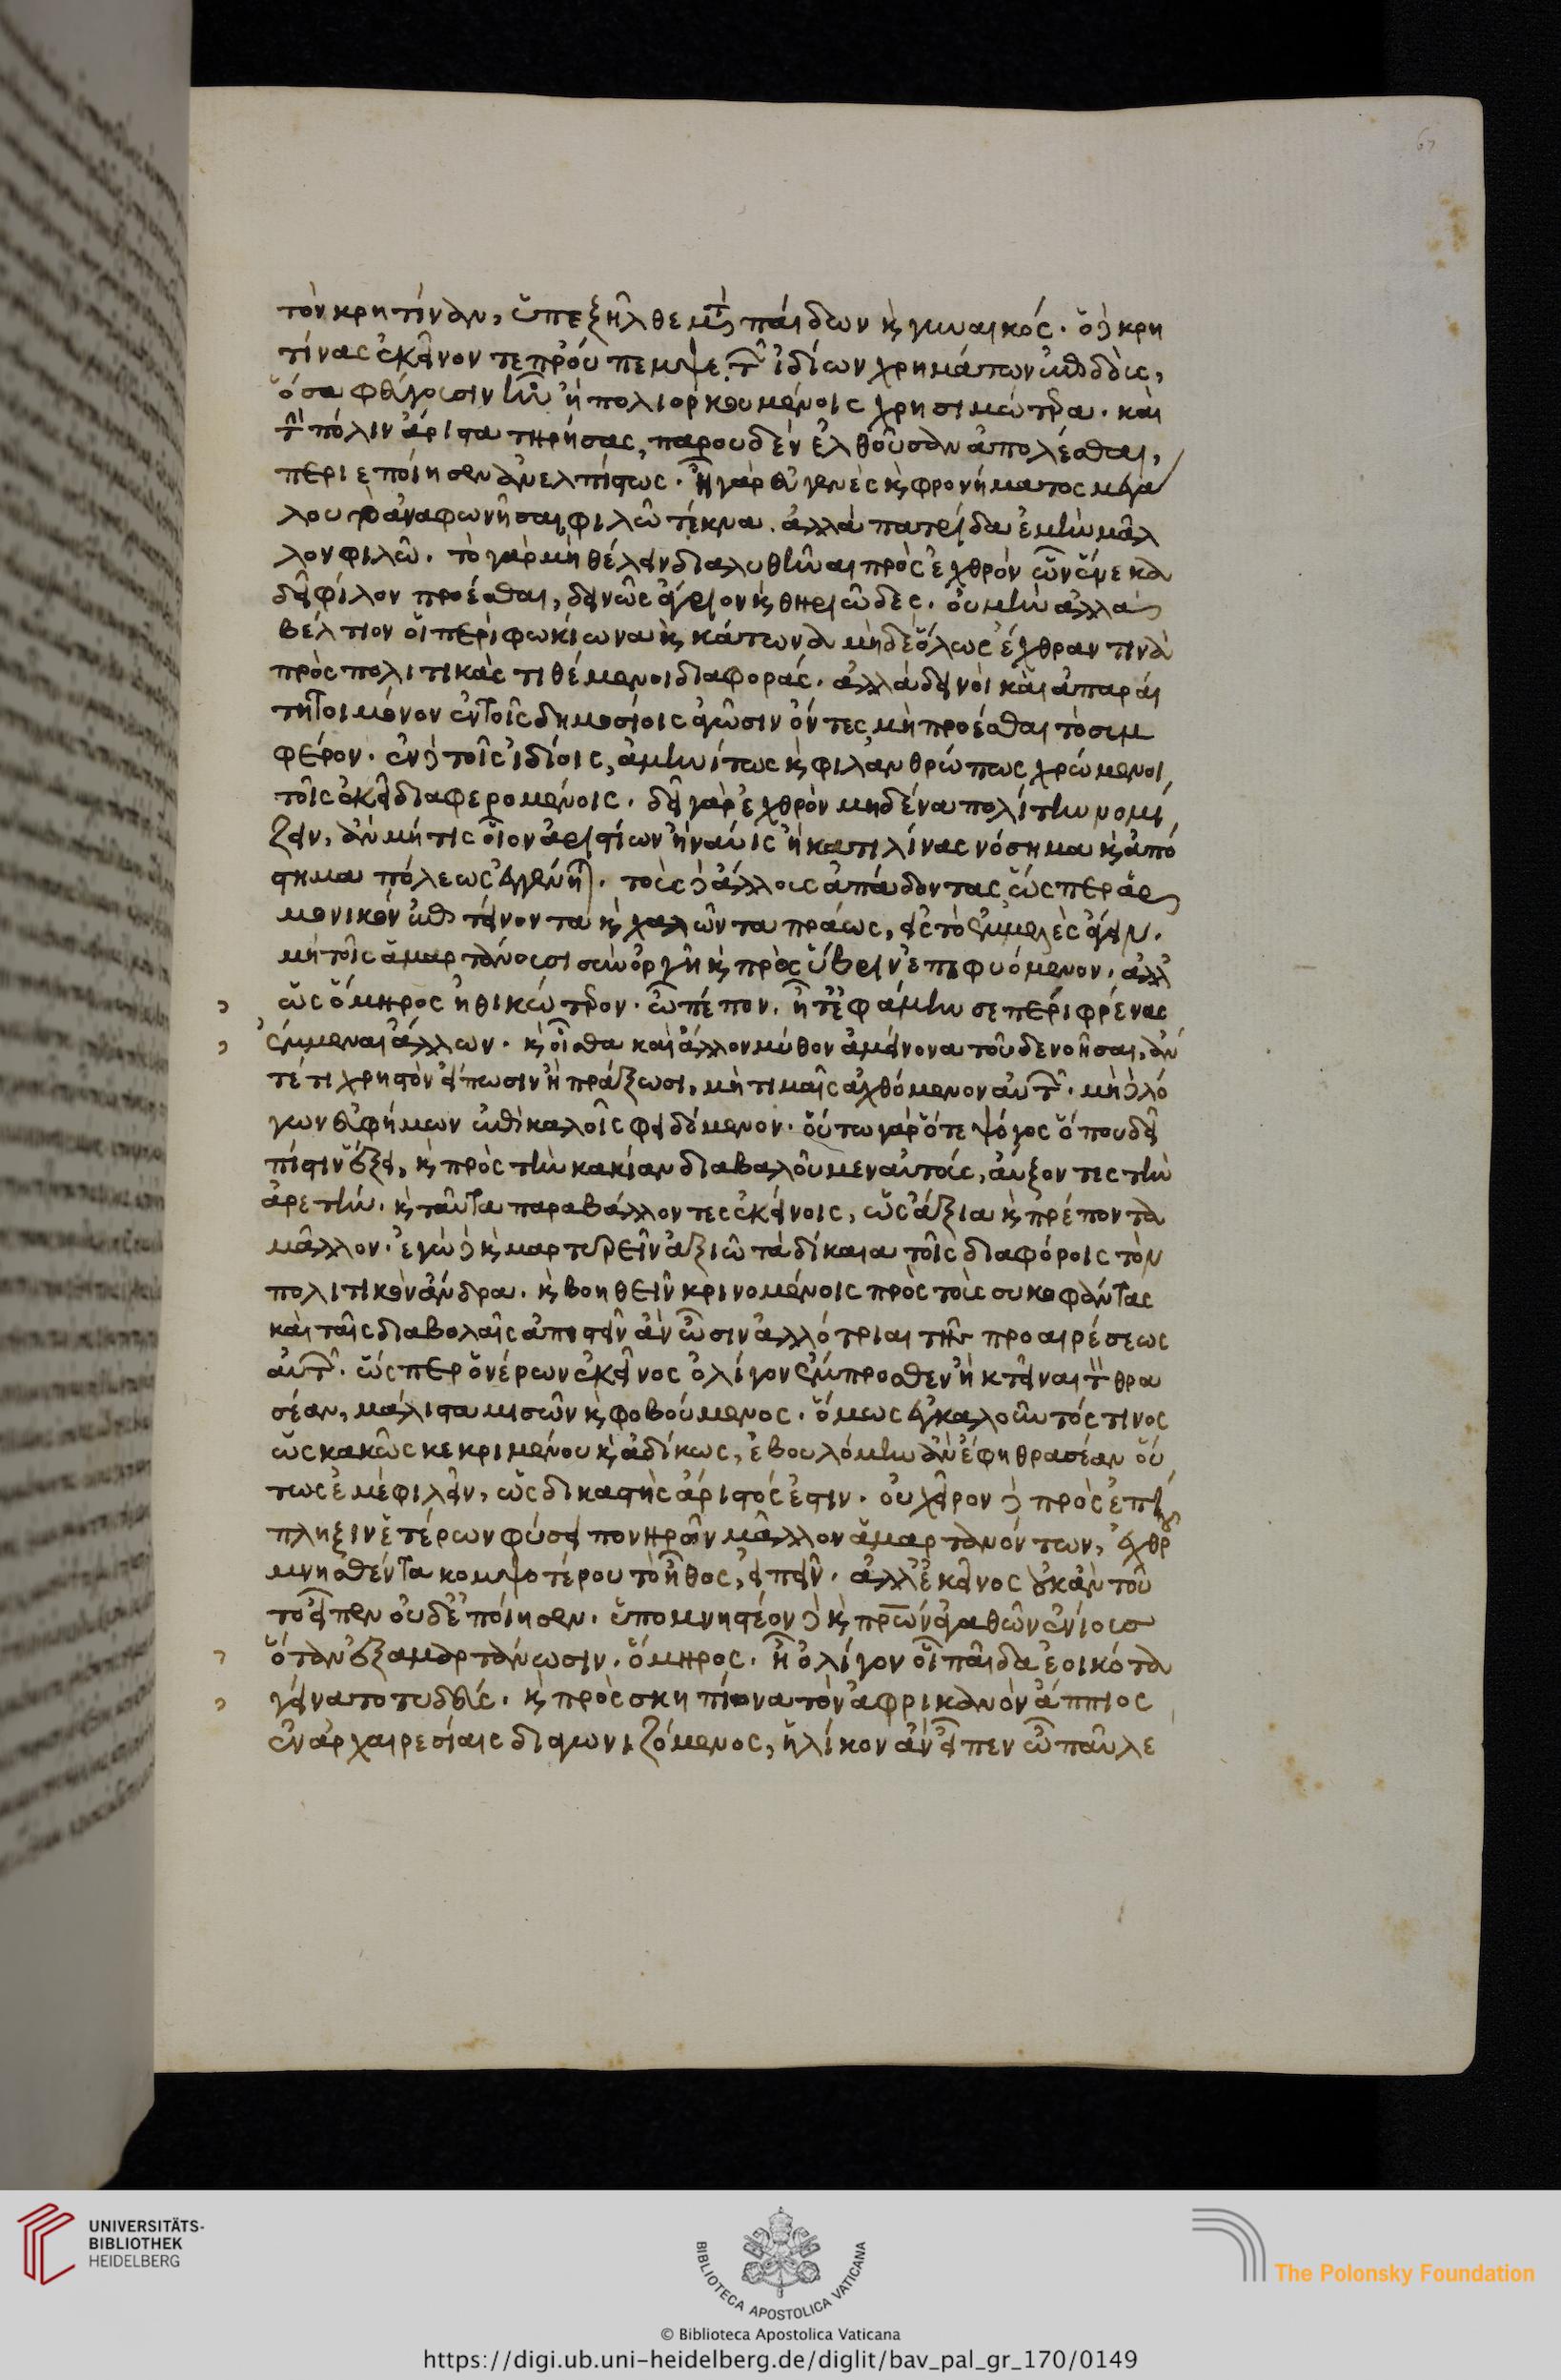 τὸν κρητίναν, ὑπεξῆλθε μετὰ παίδων κ γυναικός. ὁ δὲ κρη
τίνας ἐκεῖνόν τε προύπεμψε τῶν ἰδίων χρημάτων ἐπιδοὺς,
ὅσα φεύγουσιν ἦν ἢ πολιορκουμένοις χρησιμώτερα. καὶ
τὴν πόλιν ἄριστα τηρήσας, παρουδὲν ἐλθοῦσαν ἀπολέσθαι,
περιεποίησεν ἀνελπίστως. ἦ γὰρ εὐγενὲς κ φρονήματος μεγά
λου τὸ ἀναφωνῆσαι, φιλῶ τέκνα. ἀλλὰ πατρίδα ἐμὴν μᾶλ
λον φιλῶ. τὸ γὰρ μὴ θέλειν διαλυθῆναι πρὸς ἐχθρὸν ὧν ἕνεκα
δεῖ φίλον προέσθαι, δεινῶς ἄγριον κ θηριῶδες. οὐ μὴν ἀλλὰ
βέλτιον οἱ περὶ φωκίωνα κ κάτωνα μηδὲ ὅλως ἔχθραν τινὰ
πρὸς πολιτικὰς τιθέμενοι διαφοράς. ἀλλὰ δεινοὶ καὶ ἀπαραί
τητοι μόνον ἐν τοῖς δημοσίοις ἀγῶσιν ὄντες, μὴ προέσθαι τὸ συμ
φέρον. ἐν δὲ τοῖς ἰδίοις, ἀμηνίτως κ φιλανθρώπως χρώμενοι
τοῖς ἐκεῖ διαφερομένοις. δεῖ γὰρ ἐχθρὸν μηδένα πολίτην νομί
ζειν, ἂν μή τις οἷον ἀριστίων ἢ νάυις ἢ κατιλίνας νόσημα κ ἀπό
στημα πόλεως ἐγγένηται. τοὺς δὲ ἄλλους ἀπᾴδοντας ὥσπερ ἁρ
μονικὸν ἐπιτείνοντα κ χαλῶντα πράως, εἰς τὸ ἐμμελὲς ἄγειν.
μὴ τοῖς ἁμαρτάνουσι σὺν ὀργῇ κ πρὸς ὕβριν ἐπιφυόμενον. ἀλλ
ὡς ὅμηρος ἠθικώτερον. ὦ πέπον. ἦ τ ἐφάμην σε περὶ φρένας
ἔμμεναι ἄλλων. κ οἶσθα καὶ ἄλλον μῦθον ἀμείνονα τοῦδε νοῆσαι. ἄν
τέ τι χρηστὸν εἴπωσιν ἢ πράξωσι, μὴ τιμαῖς ἀχθόμενον αὐτῶν. μὴ δὲ λό
γων εὐφήμων ἐπὶ καλοῖς φειδόμενον. οὕτω γὰρ ὅτε ψόγος ὅπου δεῖ
πίστιν ἕξει, κ πρὸς τὴν κακίαν διαβαλοῦμεν αὐτούς, αὔξοντες τὴν
ἀρετήν. κ ταῦτα παραβάλλοντες ἐκείνοις, ὡς ἄξια κ πρέποντα
μᾶλλον. ἐγὼ δὲ κ μαρτυρεῖν ἀξιῶ τὰ δίκαια τοῖς διαφόροις τὸν
πολιτικὸν ἄνδρα. κ βοηθεῖν κρινομένοις πρὸς τοὺς συκοφάντας
καὶ ταῖς διαβολαῖς ἀπιστεῖν ἂν ὦσιν ἀλλότριαι τῆς προαιρέσεως
αὐτῶν. ὥσπερ ὁ νέρων ἐκεῖνος ὀλίγον ἔμπροσθεν ἢ κτεῖναι τὸν θρα
σέαν, μάλιστα μισῶν κ φοβούμενος. ὅμως ἐγκαλοῦντός τινος
ὡς κακῶς κεκριμένου κ ἀδίκως, ἐβουλόμην ἂν ἔφη θρασέαν οὕ
τως ἐμὲ φιλεῖν, ὡς δικαστὴς ἄριστός ἐστιν. οὐ χεῖρον δὲ πρὸς ἐπί
πληξιν ἑτέρων φύσει πονηρῶν μᾶλλον ἁμαρτανόντων, ἐχθροῦ
μνησθέντα κομψοτέρου τὸ ἦθος, εἰπεῖν. ἀλλ ἐκεῖνος οὐκ ἂν τοῦ
το εἶπεν οὐδ ἐποίησεν. ὑπομνηστέον δὲ κ πρων ἀγαθῶν ἐνίους
ὅταν ἐξαμαρτάνωσιν. ὅμηρος. ἦ ὀλίγον οἷ παῖδα ἐοικότα
γείνατο τυδεύς. κ πρὸς σκηπίωνα τὸν ἀφρικανὸν ἄππιος
ἐν ἀρχαιρεσίαις διαγωνιζόμενος, ἡλίκον ἂν εἶπεν ὦ παῦλε
UNIVERSITÄTS-
BIBLIOTHEK
HEIDELBERG
BIBLIOTECA APOSTOLICA VATICANA
The Polonsky Foundation
© Biblioteca Apostolica Vaticana
https://digi.ub.uni-heidelberg.de/diglit/bav_pal_gr_170/0149